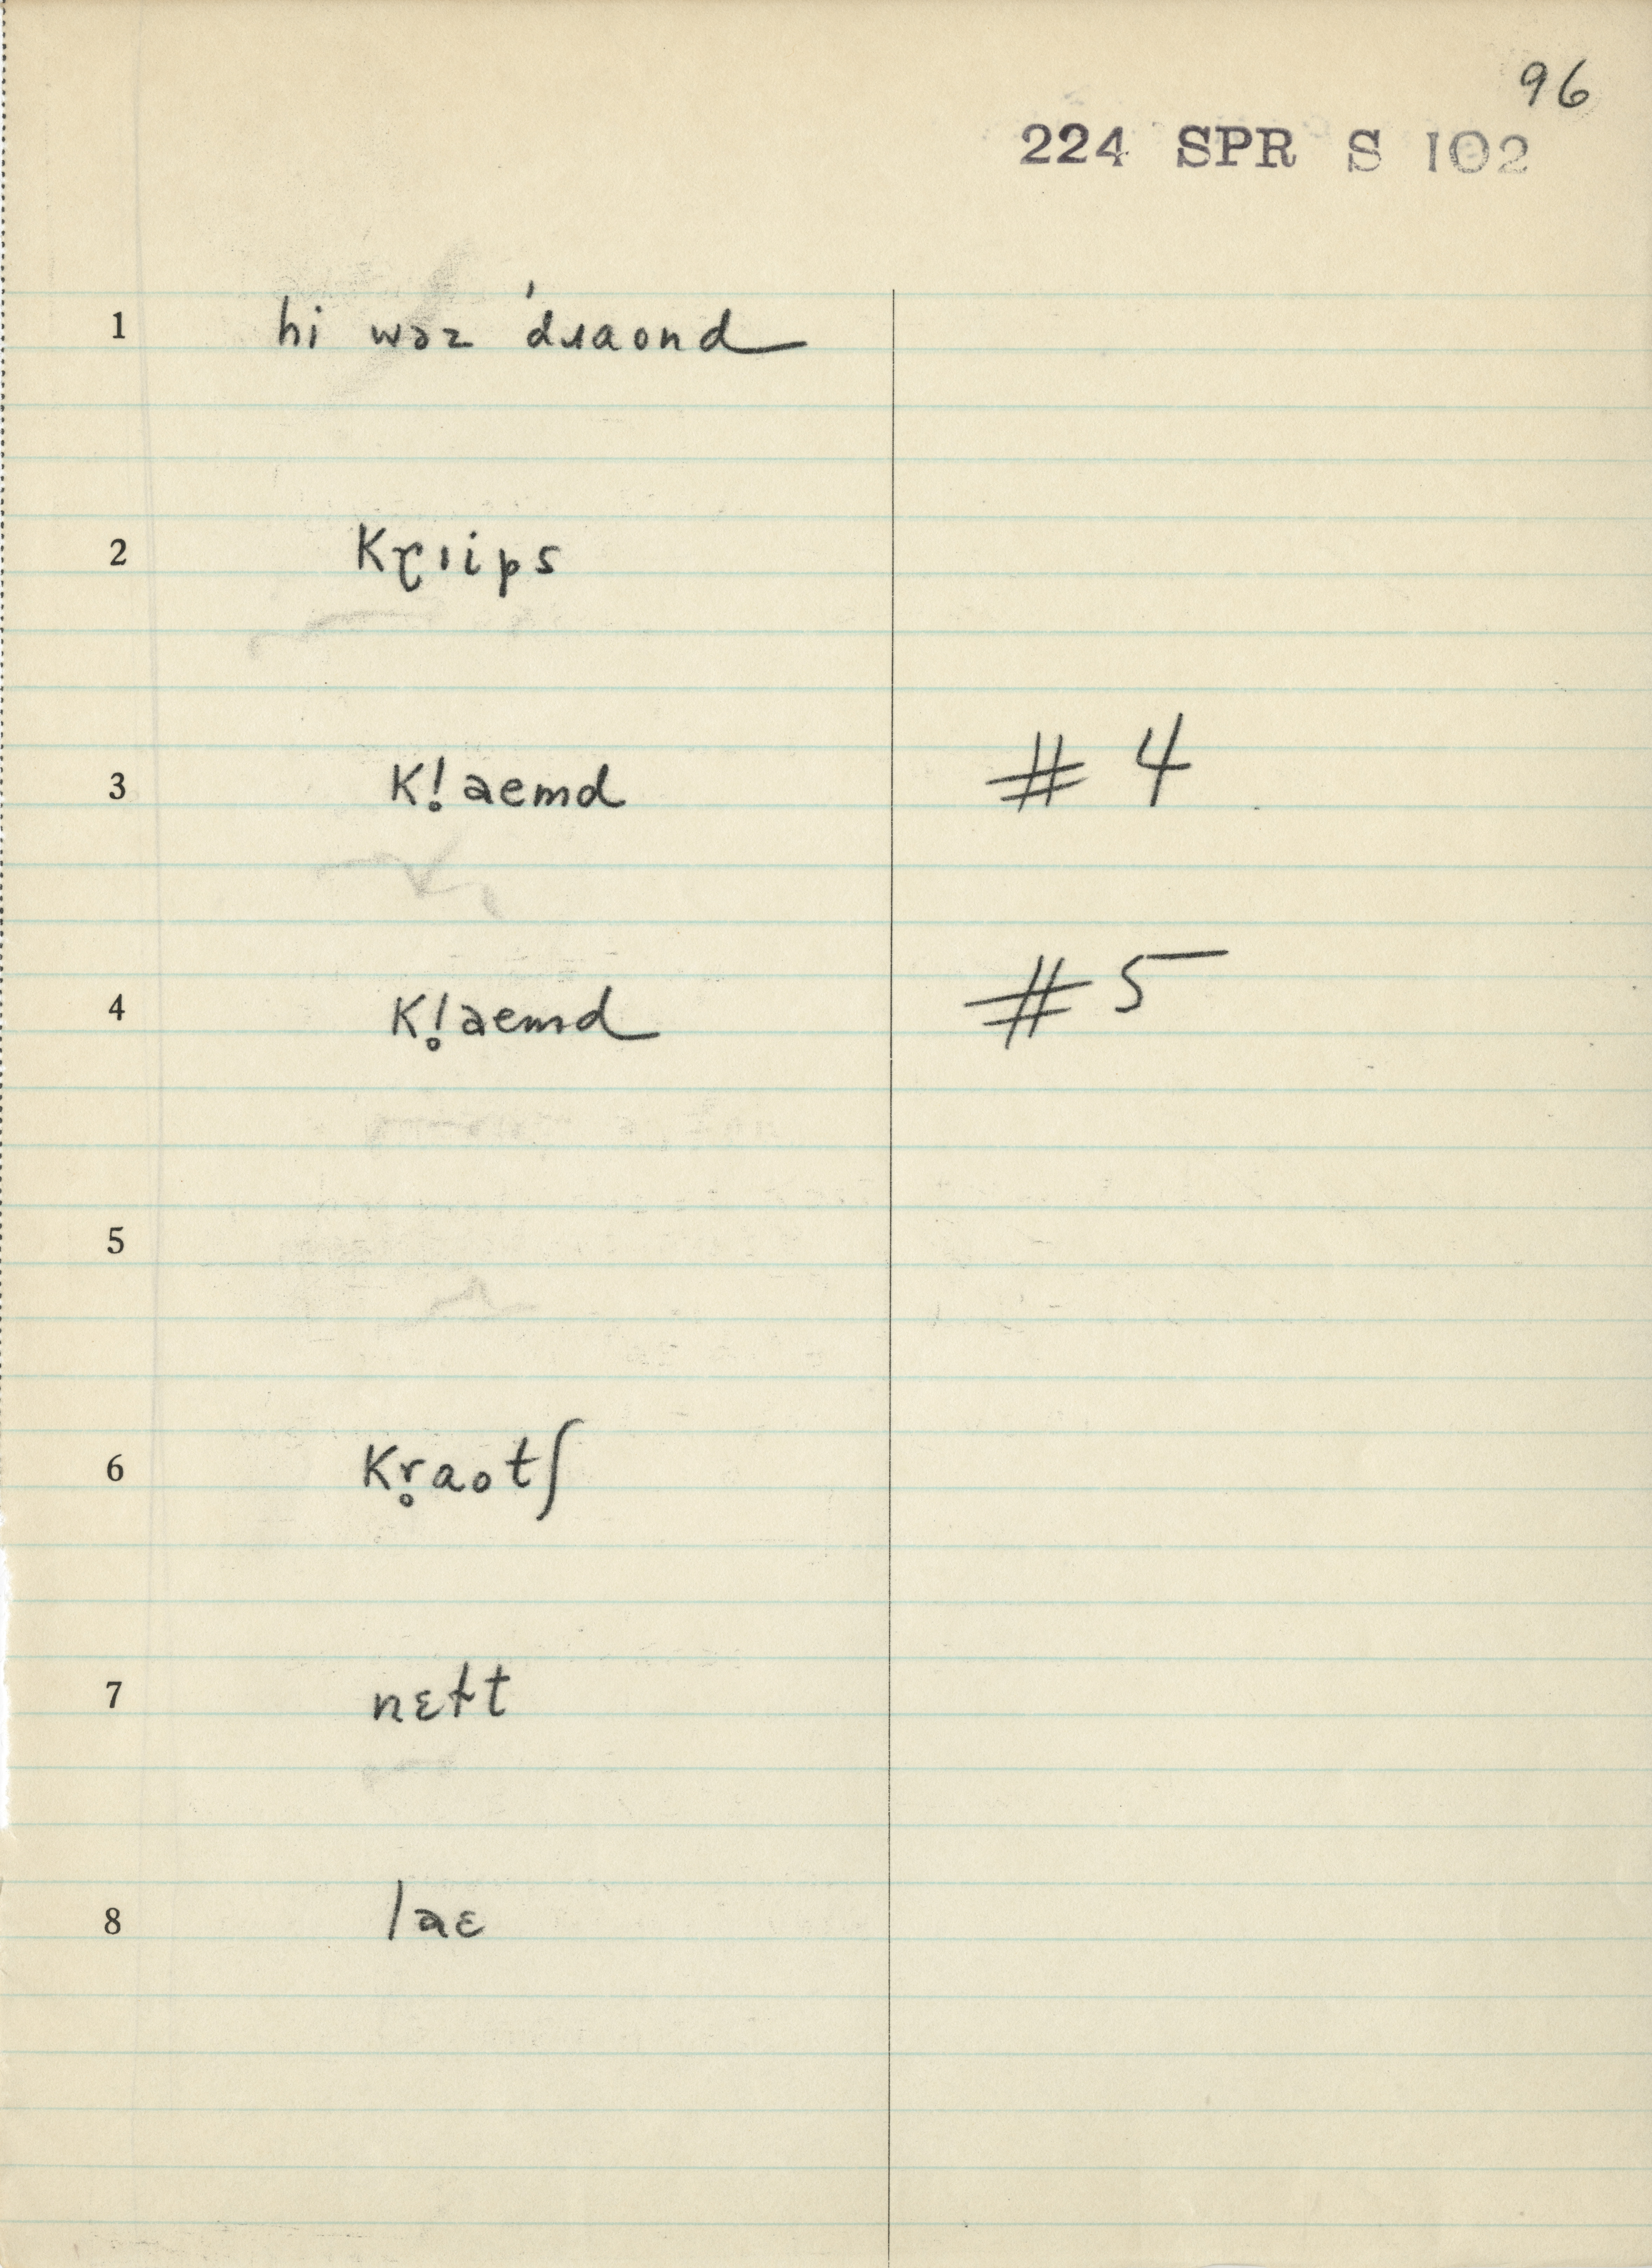 96
224 SPR S 102
1 hi wəz ˈdɹaond
2 kɽɪips
3 kl̥aemd # 4
4 kl̥aemd # 5
5
6 kr̥aotʃ
7 nɛɫt
8 laɛ